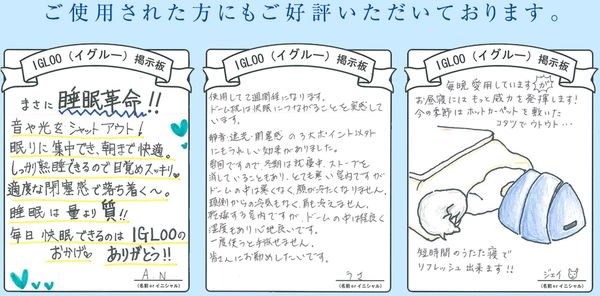 ご使用された方にもご好評いただいております。
IGLOO（イグルー）掲示板
まさに睡眠革命!!
音や光をシャットアウト!
眠りに集中でき、朝まで快適。
しっかり熟睡できるので目覚めスッキリ
適度な閉塞感で落ち着く～。
睡眠は量より質!!
毎日快眠できるのはIGLOOの
おかげ ありがとう!!
A N
(名前orイニシャル)
IGLOO（イグルー）掲示板
使用して2週間経になります。
ドーム枕は快眠につながることを実感して
います。
静音・遮光・閉塞感の3大ポイント以外
にもうれしい効果がありました。
寒団ですので冬期は就寝中、ストーブを
消していることもあり、とても寒い室内ですが
ドームの中は寒くなく顔が冷たくなりません。
頭側からの冷気もなく、肩も冷えません。
乾燥する室内ですが、ドームの中は程良く
湿度もあり心地良いです。
一度使うと手放せません。
皆さんにお勧めしたいです。
(名前orイニシャル)
IGLOO（イグルー）掲示板
毎晩愛用していますが
お昼寝にはもっと威力を発揮します!
今の季節はホットカーペットを敷いた
コタツでウトウト・・・
短時間のうたた寝で
リフレッシュ出来ます!!
ジェイ
(名前orイニシャル)